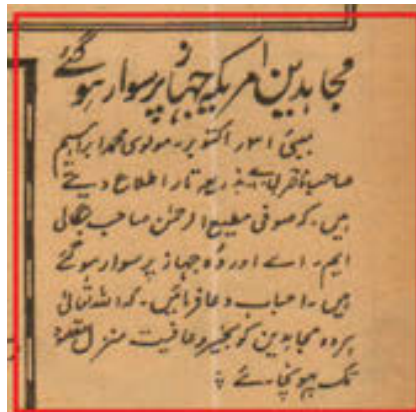 مجاہدین امریکہ جہاز پر سوار ہو گئے
بمبئی ۳۱ اکتوبر۔ مولوی محمد ابراہیم
صاحب بذریعہ تار اطلاع دیتے
ہیں۔ کہ صوفی مطیع الرحمٰن صاحب بنگالی
ایم۔ اے اور وُہ جہاز پر سوار ہو گئے
ہیں۔ احباب دعا فرمائیں۔ کہ اللہ تعالیٰ
ہر دو مجاہدین کو بخیر و عافیت منزل مقصود
تک پہونچائے ؞